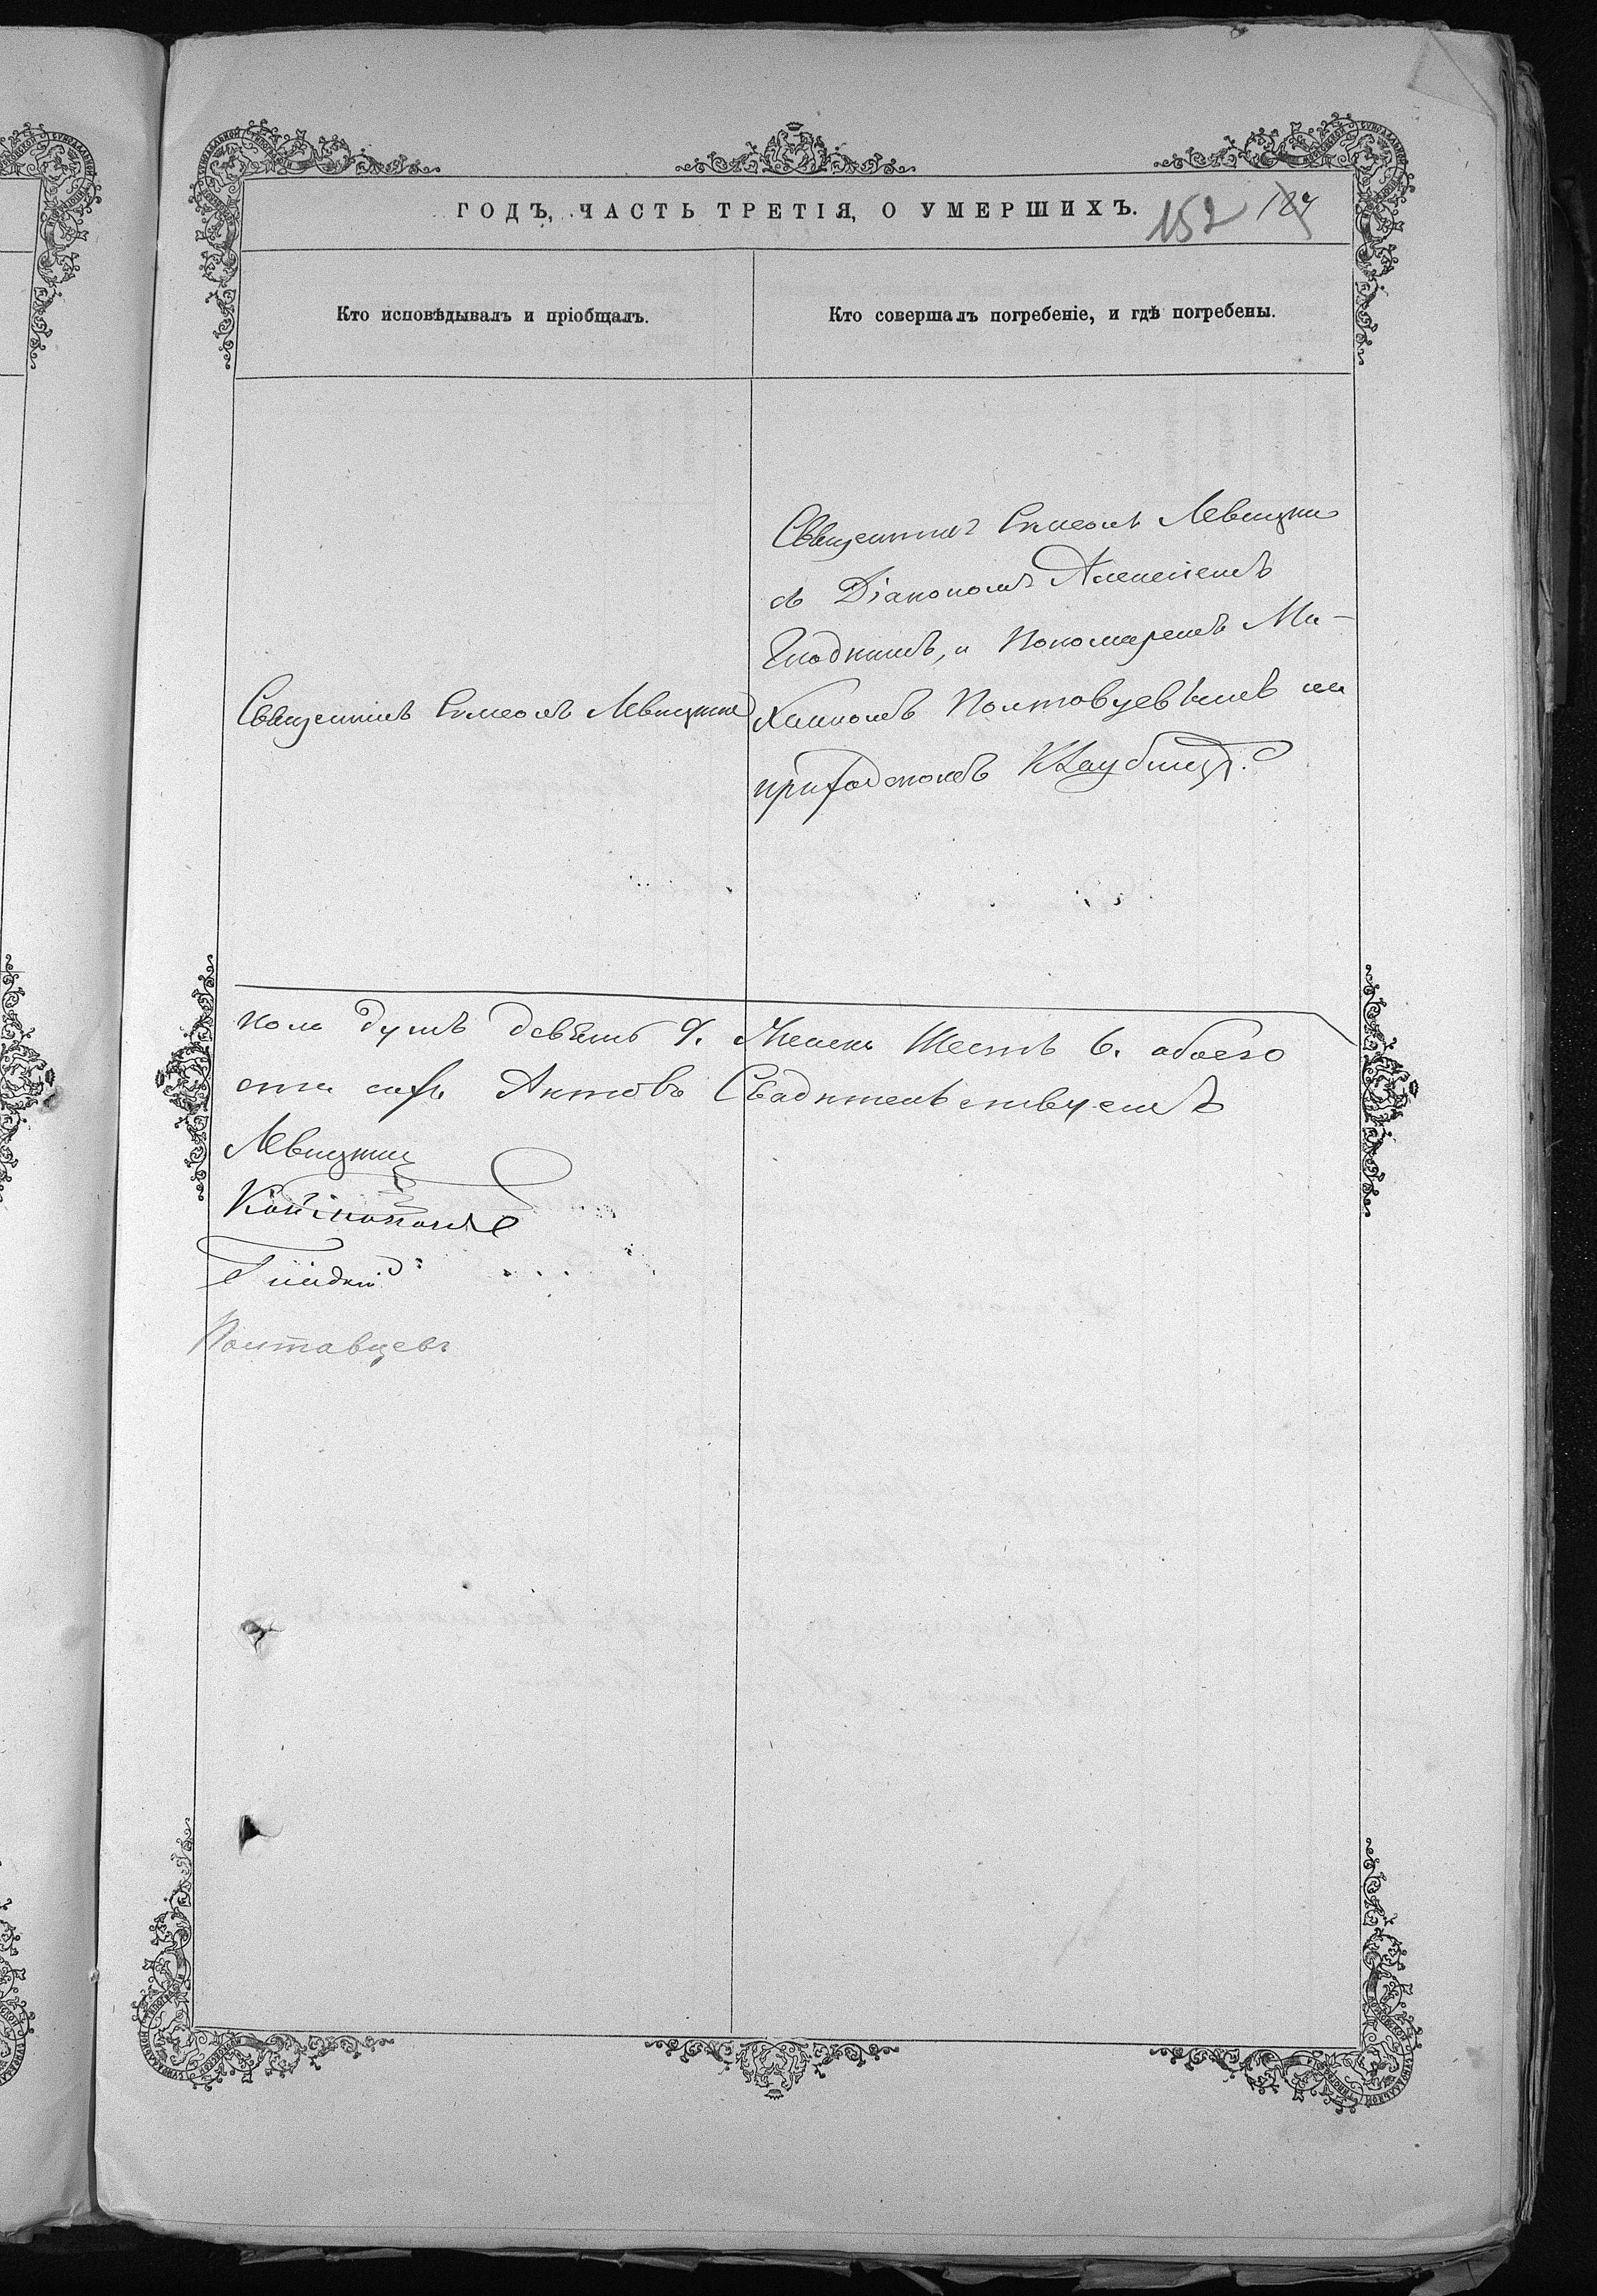 ГОДЪ, ЧАСТЬ ТРЕТІЯ, О УМЕРШИХЪ.
152
Кто исповѣдывалъ и пріобщалъ.
Кто совершалъ погребеніе, и гдѣ погребены.
Священникъ Симеонъ Левицкій
Священникъ Симеонъ Левицкій
съ Діакономъ Алексіемъ
Гладкимъ, и Пономаремъ Ми-
хаиломъ Полтавцевымъ на
приходскомъ Кладбищѣ.
пола душъ девять 9. Женска Шесть 6. обоего
Актовъ Свидѣтельствуемъ
Левицкій
Гладкій
Полтавцевъ